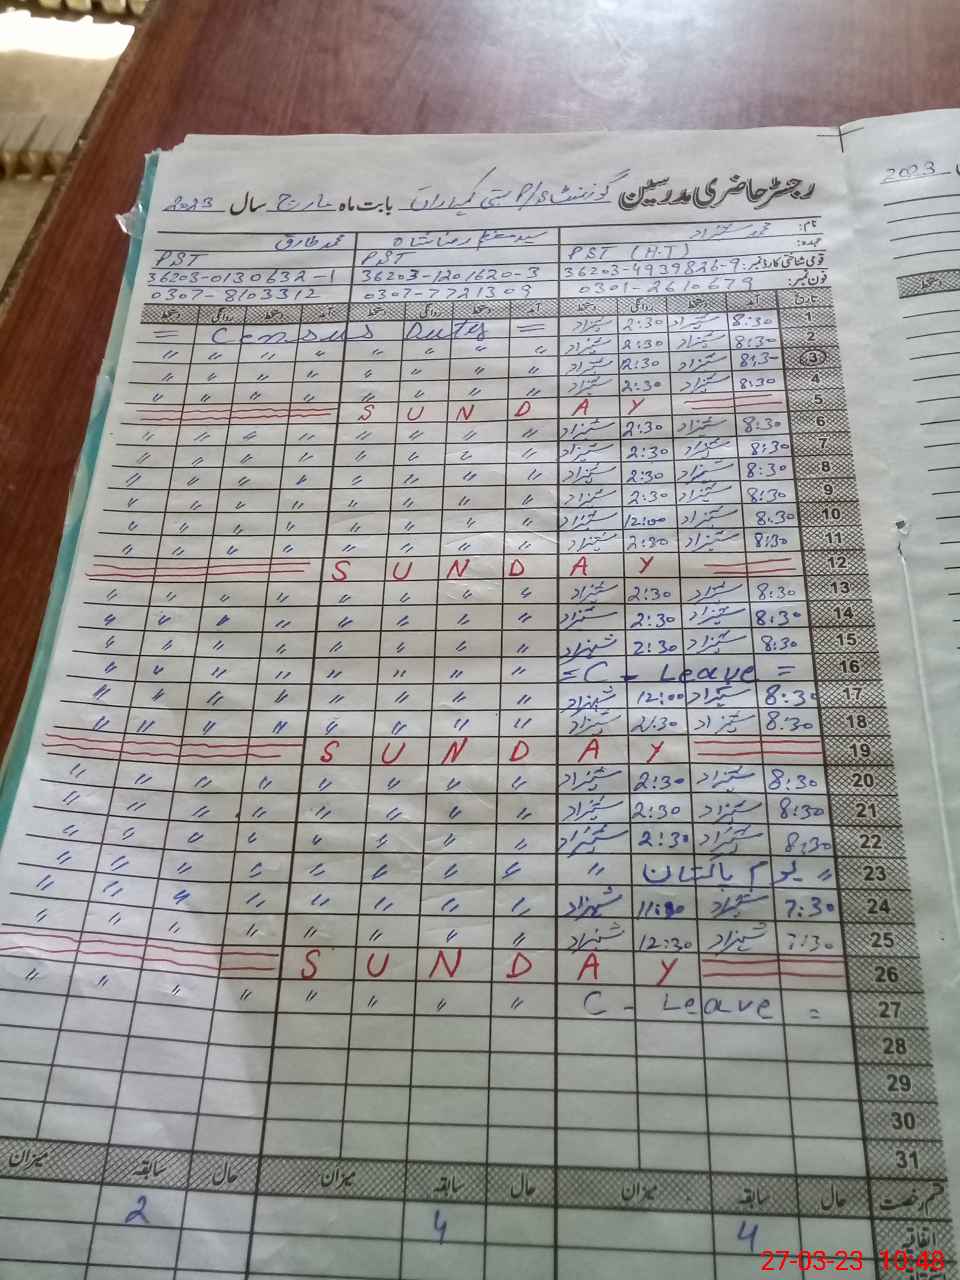 رجسٹر حاضری مدرسین گورنمنٹ P/S بستی بابت ماہ مارچ سال 2023
2023
نام: محمد شہزاد سید رضا شاہ محمد طارق
عہدہ: PST (H.T) PST PST
قومی شناختی کارڈ نمبر: 36203-4939826-9 36203-1201620-3 36203-0130632-1
فون نمبر: 0301-2610679 0307-7721309 0307-8103312
تاریخ آمد دستخط روانگی دستخط آمد دستخط روانگی دستخط آمد دستخط روانگی دستخط
1 8:30 شہزاد 2:30 شہزاد = Census Duty =
2 8:30 شہزاد 2:30 شہزاد " " " " " " " "
3 8:30 شہزاد 2:30 شہزاد " " " " " " " "
4 8:30 شہزاد 2:30 شہزاد " " " " " " " "
5 SUNDAY
6 8:30 شہزاد 2:30 شہزاد " " " " " " " "
7 8:30 شہزاد 2:30 شہزاد " " " " " " " "
8 8:30 شہزاد 2:30 شہزاد " " " " " " " "
9 8:30 شہزاد 2:30 شہزاد " " " " " " " "
10 8:30 شہزاد 12:00 شہزاد " " " " " " " "
11 8:30 شہزاد 2:30 شہزاد " " " " " " " "
12 SUNDAY
13 8:30 شہزاد 2:30 شہزاد " " " " " " " "
14 8:30 شہزاد 2:30 شہزاد " " " " " " " "
15 8:30 شہزاد 2:30 شہزاد " " " " " " " "
16 = C - Leave = " " " " " " " "
17 8:30 شہزاد 12:00 شہزاد " " " " " " " "
18 8:30 شہزاد 2:30 شہزاد " " " " " " " "
19 SUNDAY
20 8:30 شہزاد 2:30 شہزاد " " " " " " " "
21 8:30 شہزاد 2:30 شہزاد " " " " " " " "
22 8:30 شہزاد 2:30 شہزاد " " " " " " " "
23 " یوم پاکستان " " " " " " " " "
24 7:30 شہزاد 11:30 شہزاد " " " " " " " "
25 7:30 شہزاد 12:30 شہزاد " " " " " " " "
26 SUNDAY
27 C - Leave = " " " " " " " "
28
29
30
31
قسم رخصت حال سابقہ میزان حال سابقہ میزان حال سابقہ میزان
اتفاقیہ 4 4 2
27-03-23 10:48